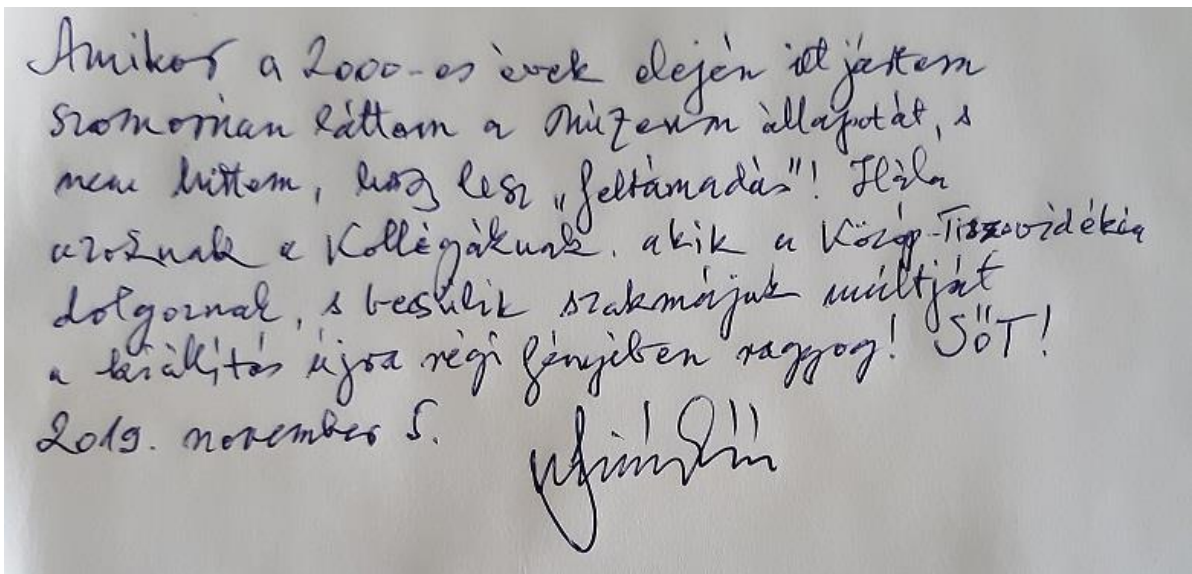 Amikor a 2000-es évek elején itt jártam
szomorúan láttam a Múzeum állapotát, s
nem hittem, hogy lesz „feltámadás"! Hála
azoknak a Kollégáknak, akik a Közép-Tiszavidékén
dolgoznak, s becsülik szakmájuk múltját
a kiállítás újra régi fényében ragyog! SŐT!
2019. november 5.